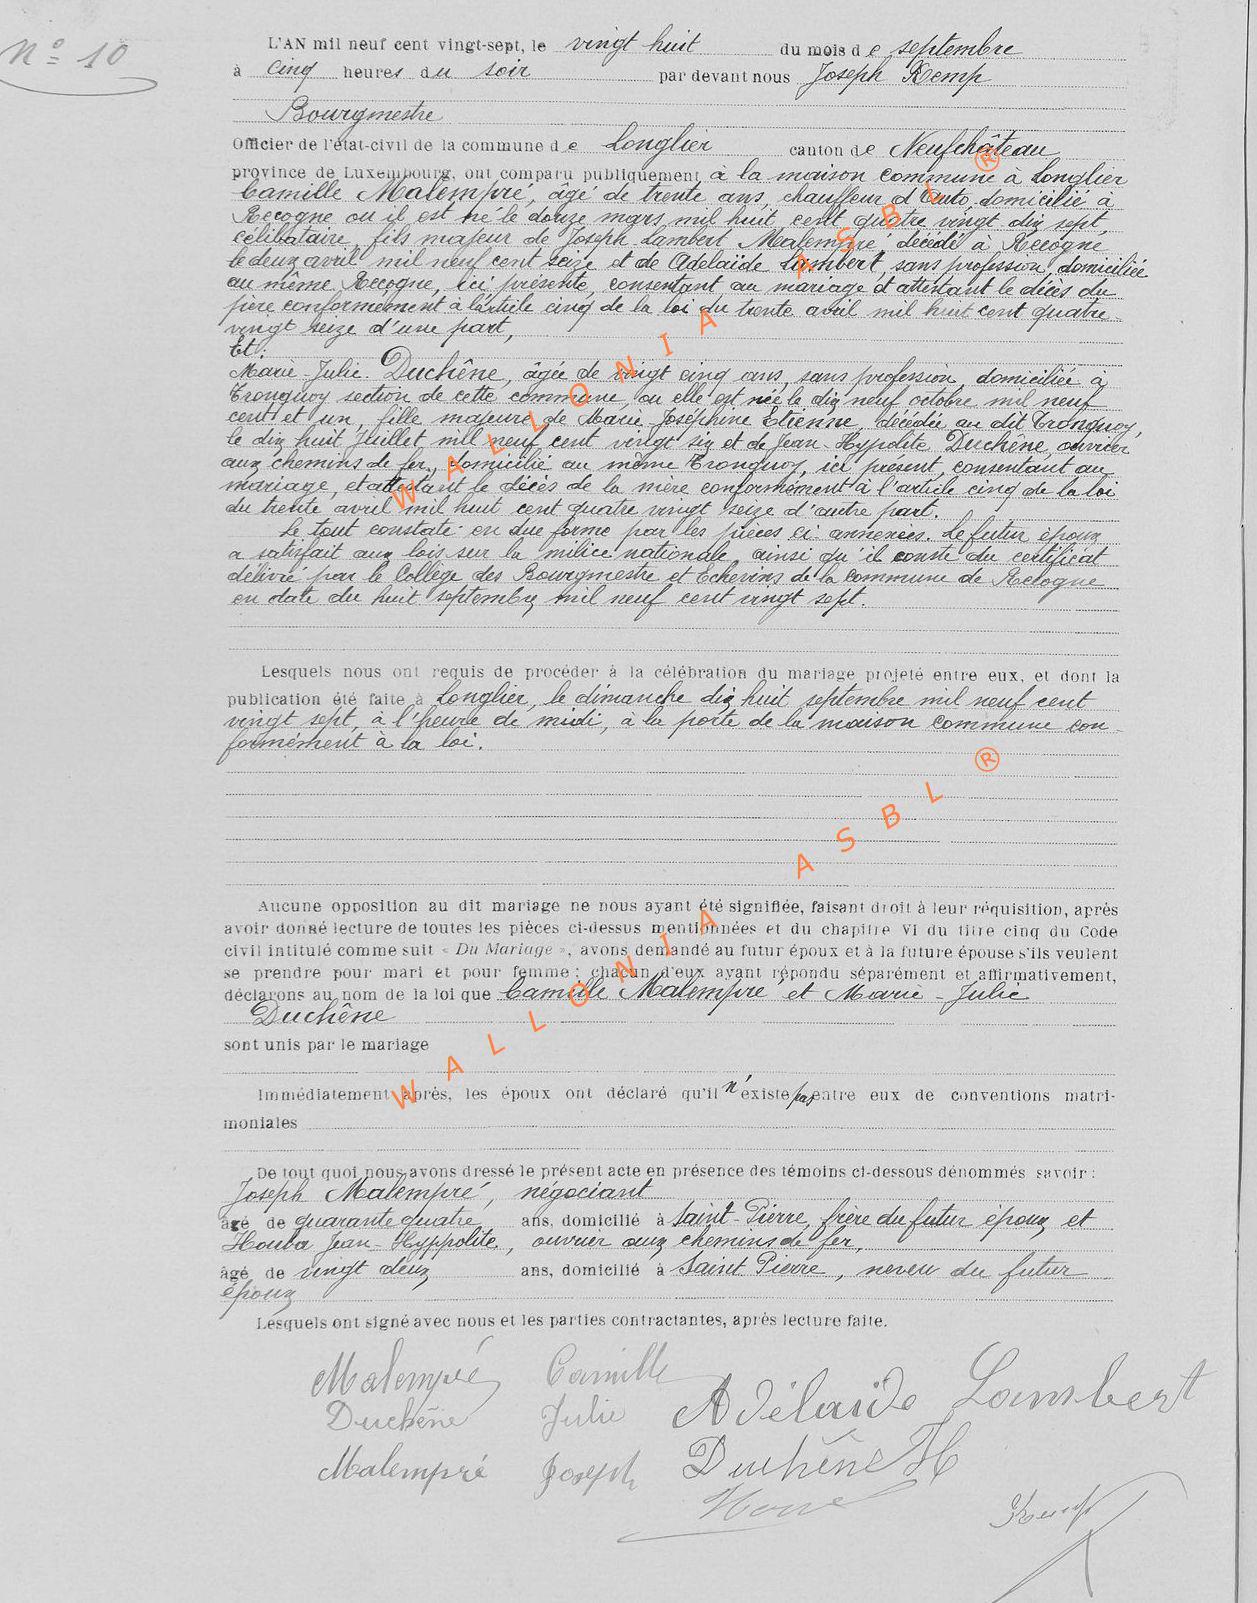 N° 10
L'AN mil neuf cent vingt-sept, le vingt huit du mois de septembre
à cinq heures du soir par devant nous Joseph Kemp
Bourgmestre
Officier de l'état-civil de la commune de Longlier canton de Neufchâteau
province de Luxembourg, ont comparu publiquement à la maison commune à Longlier
Camille Malempré, âgé de trente ans, chauffeur d'auto, domicilié à
Recogne ou il est né le douze mars mil huit cent quatre vingt dix sept,
célibataire, fils majeur de Joseph Lambert Malempré, décédé à Recogne
le deux avril mil neuf cent seize et de Adelaïde Lambert, sans profession, domiciliée
au même Recogne, ici présente, consentant au mariage et attestant le décès du
père conformément à l'article cinq de la loi du trente avril mil huit cent quatre
vingt seize d'une part,
Et:
Marie-Julie Duchêne, âgée de vingt cinq ans, sans profession, domiciliée à
Tronquoy section de cette commune, ou elle est née le dix neuf octobre mil neuf
cent et un, fille majeure de Marie Joséphine Etienne, décédée au dit Tronquoy,
le dix huit Juillet mil neuf cent vingt six et de Jean-Hypolite Duchêne, ouvrier
aux chemins de fer, domicilié au même Tronquoy, ici présent, consentant au
mariage, et attestant le décès de la mère conformément à l'article cinq de la loi
du trente avril mil huit cent quatre vingt seize d'autre part.
Le tout constaté en due forme par les pièces ci-annexées. Le futur époux
a satisfait aux lois sur la milice nationale, ainsi qu'il conste du certificat
délivré par le Collège des Bourgmestre et Echevins de la commune de Recogne
en date du huit septembre mil neuf cent vingt sept.
Lesquels nous ont requis de procéder à la célébration du mariage projeté entre eux, et dont la
publication été faite à Longlier, le dimanche dix huit septembre mil neuf cent
vingt sept, à l'heure de midi, à la porte de la maison commune con-
formément à la loi.
Aucune opposition au dit mariage ne nous ayant été signifiée, faisant droit à leur réquisition, après
avoir donné lecture de toutes les pièces ci-dessus mentionnées et du chapitre VI du titre cinq du Code
civil intitulé comme suit « Du Mariage », avons demandé au futur époux et à la future épouse s'ils veulent
se prendre pour mari et pour femme ; chacun d'eux ayant répondu séparément et affirmativement,
déclarons au nom de la loi que Camille Malempré et Marie-Julie
Duchêne
sont unis par le mariage
Immédiatement après, les époux ont déclaré qu'il n'existe pas entre eux de conventions matri-
moniales
De tout quoi nous avons dressé le présent acte en présence des témoins ci-dessous dénommés savoir :
Joseph Malempré, négociant
âgé de quarante quatre ans, domicilié à Saint-Pierre, frère du futur époux et
Houba Jean-Hyppolite, ouvrier aux chemins de fer,
âgé de vingt deux ans, domicilié à Saint Pierre, neveu du futur
époux
Lesquels ont signé avec nous et les parties contractantes, après lecture faite.
Malempré Camille
Adélaide Lambert
Duchêne Julie
Malempré Joseph Duchêne H
Kemp
WALLONIA ASBL ®
WALLONIA ASBL ®